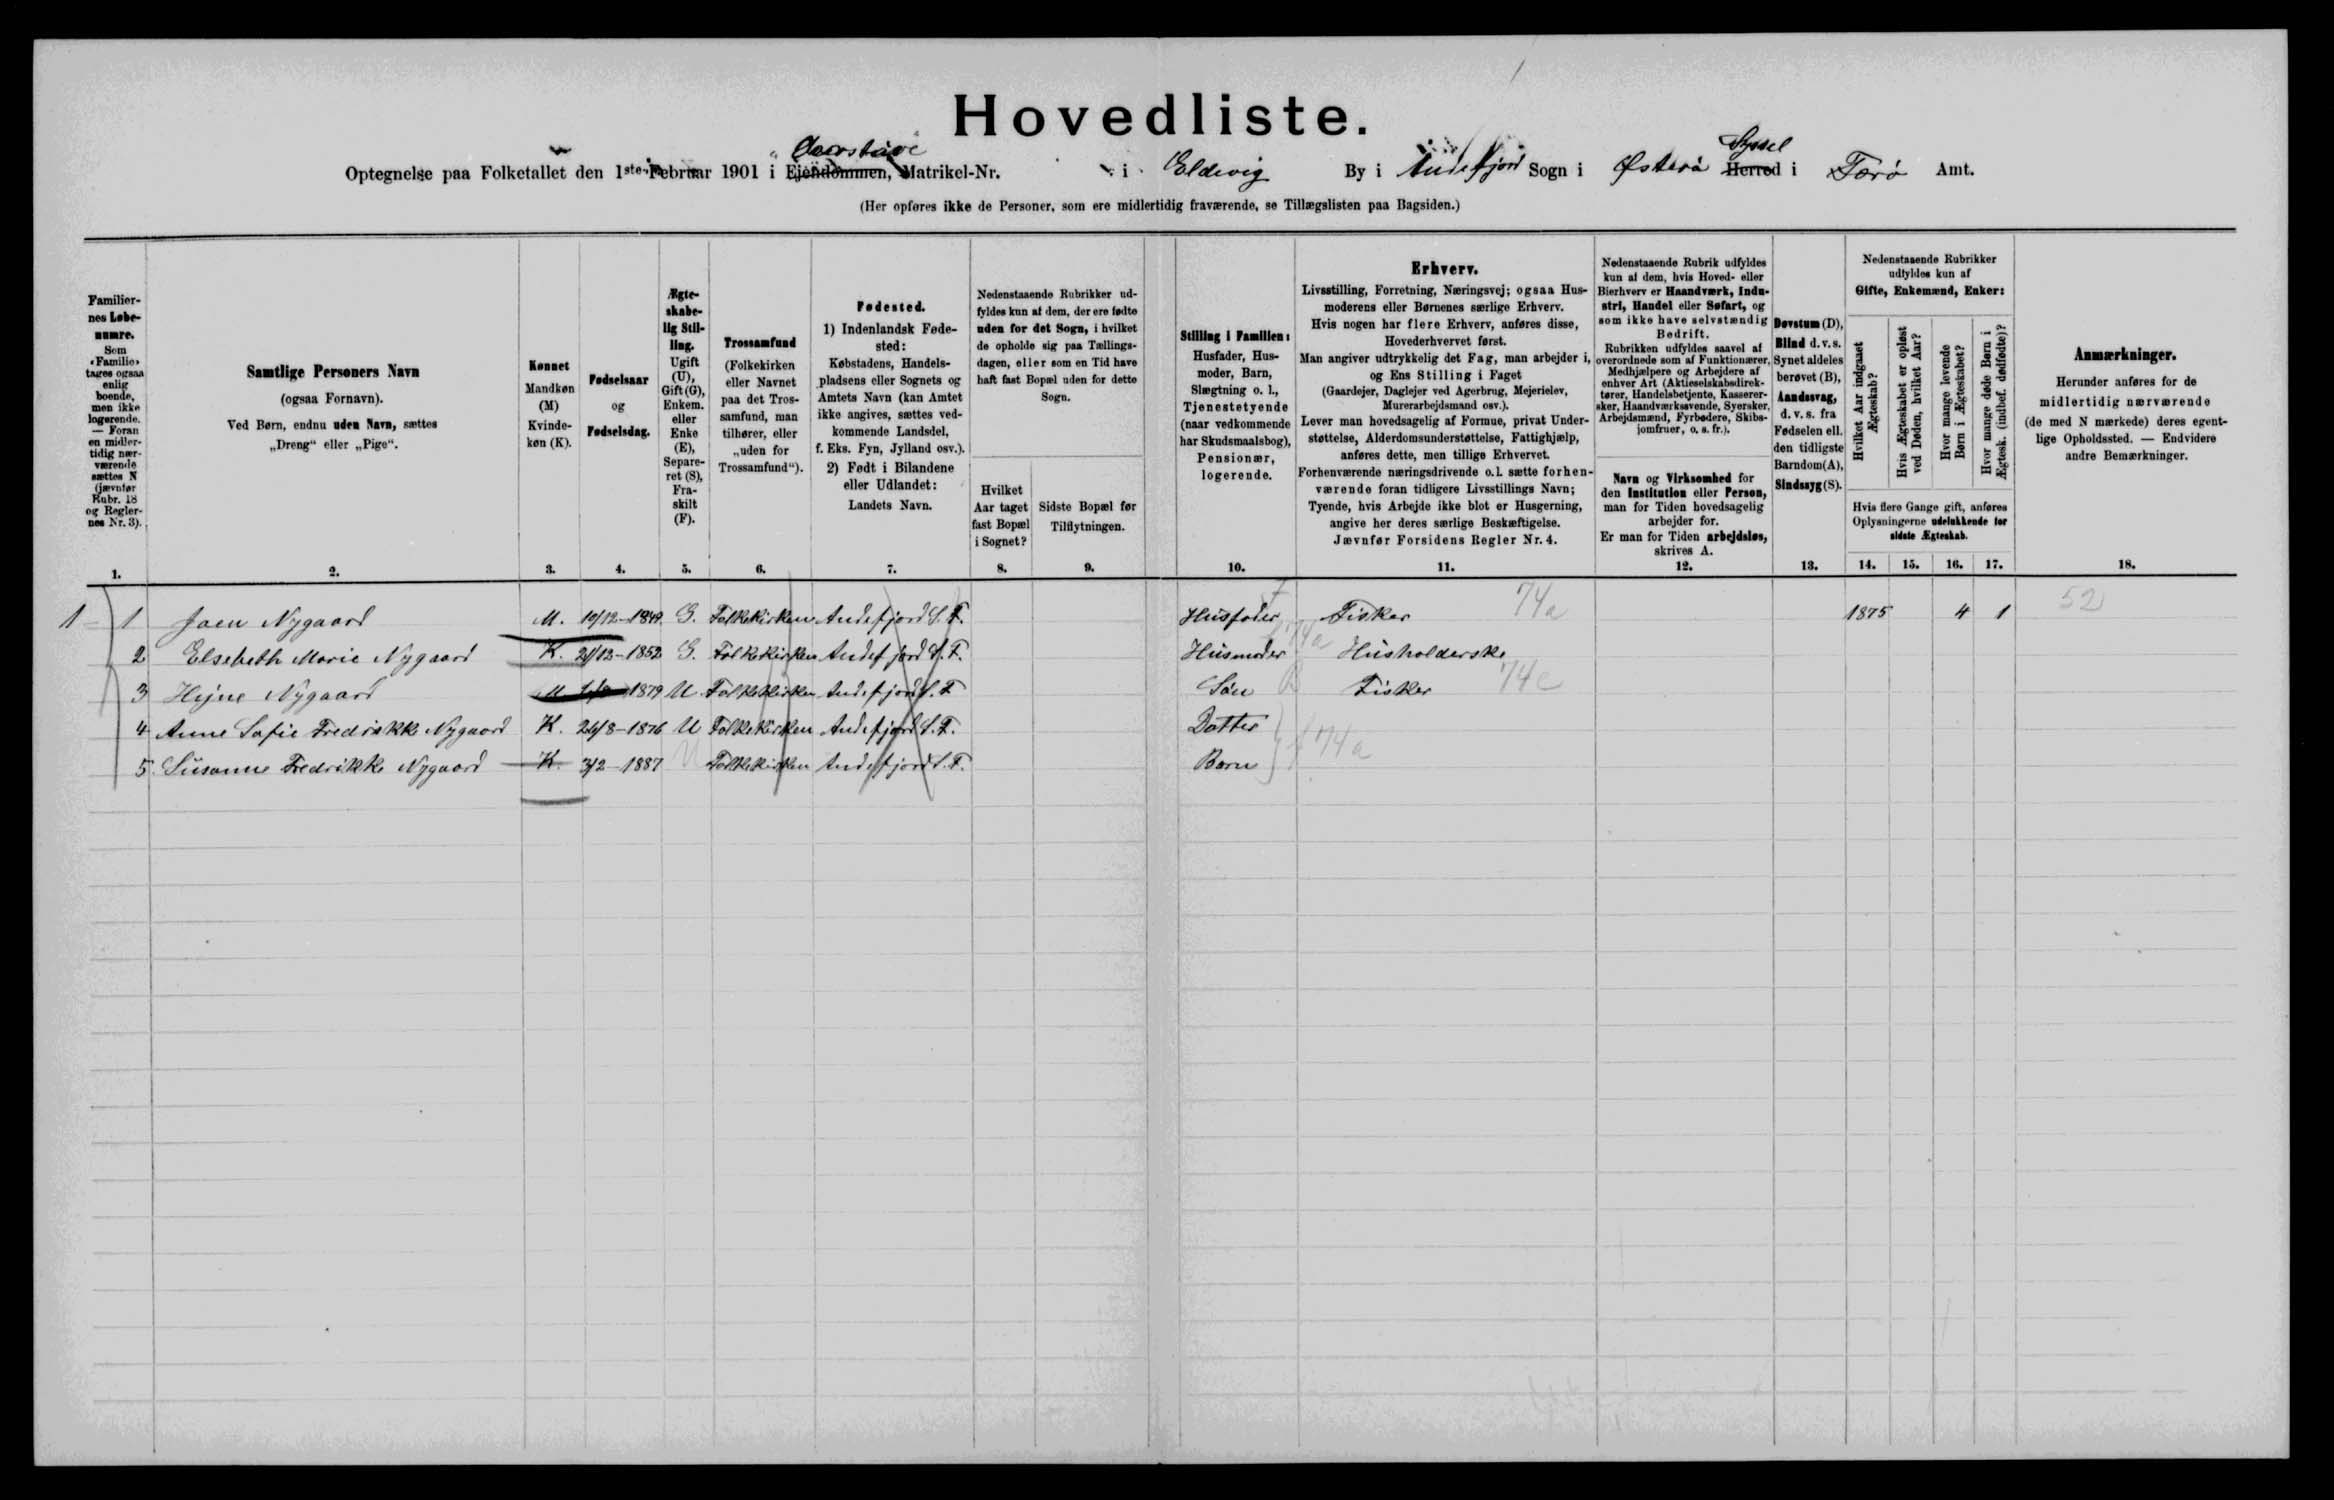 Hovedliste.
Optegnelse paa Folketallet den 1ste Februar 1901 i Ejendommen, Matrikel-Nr. i Eldevig By i Andefjord Sogn i Østerø Herred Syssel i Færø Amt.
(Her opføres ikke de Personer, som ere midlertidig fraværende, se Tillægslisten paa Bagsiden.)
Familiernes Løbenumre.
Som «Familie» tages ogsaa enlig boende, men ikke logerende. — Foran en midlertidig nærværende sættes N (jævnfør Rubr. 18 og Reglernes Nr. 3).
Samtlige Personers Navn
(ogsaa Fornavn).
Ved Børn, endnu uden Navn, sættes
„Dreng“ eller „Pige“.
Kønnet
Mandkøn (M)
Kvindekøn (K).
Fødselsaar
og
Fødselsdag.
Ægteskabelig Stilling.
Ugift (U), Gift (G), Enkem. eller Enke (E), Separeret (S), Fraskilt (F).
Trossamfund
(Folkekirken eller Navnet paa det Trossamfund, man tilhører, eller „uden for Trossamfund“).
Fødested.
1) Indenlandsk Fødested:
Købstadens, Handelspladsens eller Sognets og Amtets Navn (kan Amtet ikke angives, sættes vedkommende Landsdel, f. Eks. Fyn, Jylland osv.).
2) Født i Bilandene eller Udlandet:
Landets Navn.
Nedenstaaende Rubrikker udfyldes kun af dem, der ere fødte uden for det Sogn, i hvilket de opholde sig paa Tællingsdagen, eller som en Tid have haft fast Bopæl uden for dette Sogn.
Hvilket Aar taget fast Bopæl i Sognet?
Sidste Bopæl før Tilflytningen.
Stilling i Familien:
Husfader, Husmoder, Barn, Slægtning o. l., Tjenestetyende (naar vedkommende har Skudsmaalsbog), Pensionær, logerende.
Erhverv.
Livsstilling, Forretning, Næringsvej; ogsaa Husmoderens eller Børnenes særlige Erhverv.
Hvis nogen har flere Erhverv, anføres disse, Hovederhvervet først.
Man angiver udtrykkelig det Fag, man arbejder i, og Ens Stilling i Faget
(Gaardejer, Daglejer ved Agerbrug, Mejerielev, Murerarbejdsmand osv.).
Lever man hovedsagelig af Formue, privat Understøttelse, Alderdomsunderstøttelse, Fattighjælp, anføres dette, men tillige Erhvervet.
Forhenværende næringsdrivende o. l. sætte forhenværende foran tidligere Livsstillings Navn;
Tyende, hvis Arbejde ikke blot er Husgerning, angive her deres særlige Beskæftigelse.
Jævnfør Forsidens Regler Nr. 4.
Nedenstaaende Rubrik udfyldes kun af dem, hvis Hoved- eller Bierhverv er Haandværk, Industri, Handel eller Søfart, og som ikke have selvstændig Bedrift.
Rubrikken udfyldes saavel af overordnede som af Funktionærer, Medhjælpere og Arbejdere af enhver Art (Aktieselskabsdirektører, Handelsbetjente, Kasserersker, Haandværkssvende, Syersker, Arbejdsmænd, Fyrbødere, Skibsjomfruer, o. s. fr.).
Navn og Virksomhed for den Institution eller Person, man for Tiden hovedsagelig arbejder for.
Er man for Tiden arbejdsløs, skrives A.
Døvstum (D), Blind d. v. s. Synet aldeles berøvet (B), Aandssvag, d. v. s. fra Fødselen ell. den tidligste Barndom (A), Sindssyg (S).
Nedenstaaende Rubrikker udfyldes kun af
Gifte, Enkemænd, Enker:
Hvilket Aar indgaaet Ægteskab?
Hvis Ægteskabet er opløst ved Døden, hvilket Aar?
Hvor mange levende Børn i Ægteskabet?
Hvor mange døde Børn i Ægtesk. (indbef. dødfødte)?
Hvis flere Gange gift, anføres Oplysningerne udelukkende for sidste Ægteskab.
Anmærkninger.
Herunder anføres for de midlertidig nærværende (de med N mærkede) deres egentlige Opholdssted. — Endvidere andre Bemærkninger.
1. 2. 3. 4. 5. 6. 7. 8. 9. 10. 11. 12. 13. 14. 15. 16. 17. 18.
1 1 Joen Nygaard M. 10/12-1849. G. Folkekirken Andefjord S. F. Husfader Fisker 74a 1875 4 1 52
2 Elsebeth Marie Nygaard K. 21/12-1852 G. Folkekirken Andefjord S. F. Husmoder 74a Husholderske
3 Hejne Nygaard M 1879 U Folkekirken Andefjord S. F Søn Fisker 74c
4 Anne Sofie Fredrikke Nygaard K. 26/8-1876 U Folkekirken Andefjord S. F. Datter
5 Susanne Fredrikke Nygaard K. 3/2-1887 U Folkekirken Andefjord S. F. Barn f 74a